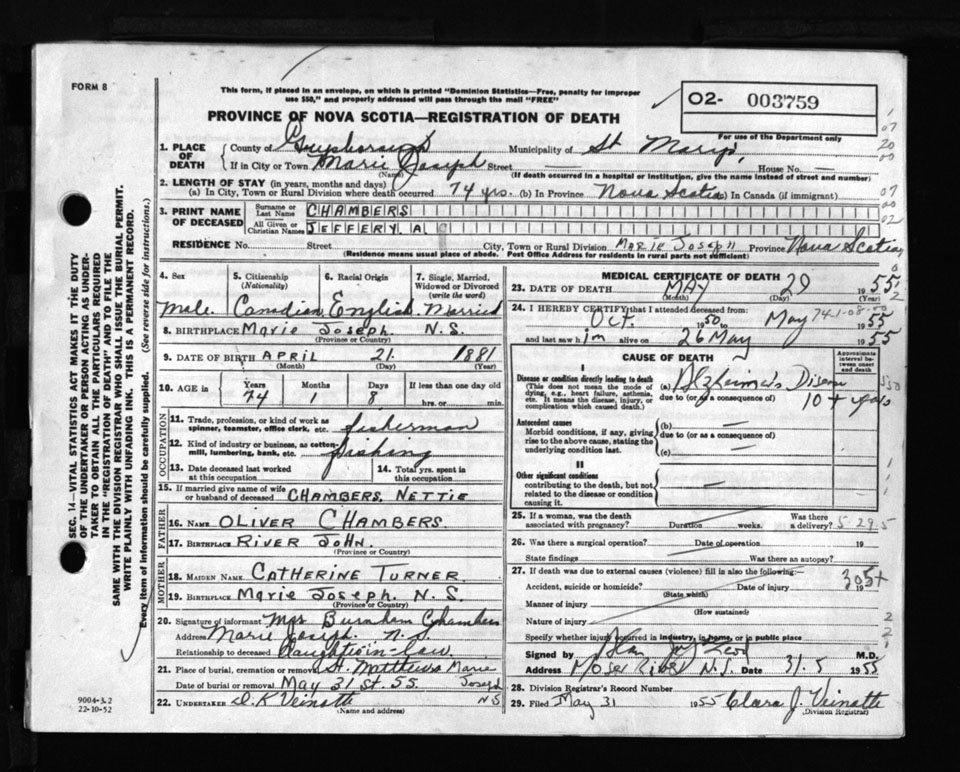 FORM 8
This form, if placed in an envelope, on which is printed "Dominion Statistics—Free, penalty for improper
use $50," and properly addressed will pass through the mail "FREE"
PROVINCE OF NOVA SCOTIA—REGISTRATION OF DEATH
02- 003759
For use of the Department only
SEC. 14—VITAL STATISTICS ACT MAKES IT THE DUTY
OF THE UNDERTAKER OR PERSON ACTING AS UNDER-
TAKER TO OBTAIN ALL THE PARTICULARS REQUIRED
IN THE "REGISTRATION OF DEATH" AND TO FILE THE
SAME WITH THE DIVISION REGISTRAR WHO SHALL ISSUE THE BURIAL PERMIT.
WRITE PLAINLY WITH UNFADING INK. THIS IS A PERMANENT RECORD.
Every item of information should be carefully supplied. (See reverse side for instructions.)
1. PLACE OF DEATH County of Guysborough Municipality of St Marys,
If in City or Town Marie Joseph Street House No. —
(Name) (If death occurred in a hospital or institution, give the name instead of street and number)
2. LENGTH OF STAY (in years, months and days)
(a) In City, Town or Rural Division where death occurred 74 yrs. (b) In Province Nova Scotia In Canada (if immigrant)
3. PRINT NAME OF DECEASED Surname or Last Name CHAMBERS
All Given or Christian Names JEFFERY. A.
RESIDENCE No. Street City, Town or Rural Division MARIE JOSEPH Province Nova Scotia
(Residence means usual place of abode. Post Office Address for residents in rural parts not sufficient)
4. Sex 5. Citizenship (Nationality) 6. Racial Origin 7. Single, Married, Widowed or Divorced (write the word)
Male. Canadian English. Married
8. BIRTHPLACE Marie Joseph. N.S.
(Province or Country)
9. DATE OF BIRTH APRIL 21. 1881
(Month) (Day) (Year)
10. AGE in Years Months Days If less than one day old
74 1 8 hrs. or min.
OCCUPATION
11. Trade, profession, or kind of work as
spinner, teamster, office clerk, etc. fisherman
12. Kind of industry or business, as cotton-
mill, lumbering, bank, etc. fishing
13. Date deceased last worked
at this occupation
14. Total yrs. spent in
this occupation
15. If married give name of wife
or husband of deceased CHAMBERS, NETTIE
FATHER
16. NAME OLIVER CHAMBERS.
17. BIRTHPLACE RIVER JOHN.
(Province or Country)
MOTHER
18. MAIDEN NAME CATHERINE TURNER.
19. BIRTHPLACE Marie Joseph. N.S.
(Province or Country)
20. Signature of informant Mrs Burnham Chambers
Address Marie Joseph. N.S.
Relationship to deceased Daughter in-law.
21. Place of burial, cremation or removal St. Matthews Marie Joseph
Date of burial or removal May 31 st. 55. NS
22. UNDERTAKER D. K Veinotte
(Name and address)
9004-3.2
22-10-52
MEDICAL CERTIFICATE OF DEATH
23. DATE OF DEATH MAY 29 1955
(Month) (Day) (Year)
24. I HEREBY CERTIFY that I attended deceased from:
Oct. 1950 to May 1955
and last saw him alive on 26 May 1955
CAUSE OF DEATH
Approximate interval between onset and death
I
Disease or condition directly leading to death
(This does not mean the mode of
dying, e.g., heart failure, asthenia,
etc. It means the disease, injury, or
complication which caused death.)
(a) Alzheimer's Disease
due to (or as a consequence of) 10 + years
Antecedent causes
Morbid conditions, if any, giving
rise to the above cause, stating the
underlying condition last.
(b) —
due to (or as a consequence of)
(c) —
II
Other significant conditions
contributing to the death, but not
related to the disease or condition
causing it. —
25. If a woman, was the death
associated with pregnancy? Duration weeks. Was there
a delivery?
26. Was there a surgical operation? Date of operation 19
State findings Was there an autopsy?
27. If death was due to external causes (violence) fill in also the following:—
Accident, suicide or homicide? Date of injury 19
(State which)
Manner of injury
(How sustained)
Nature of injury
Specify whether injury occurred in industry, in home, or in public place
Signed by M.D.
Address Moser River N.S. Date 31.5 1955
28. Division Registrar's Record Number
29. Filed May 31 1955 Clara J. Veinotte
(Division Registrar)